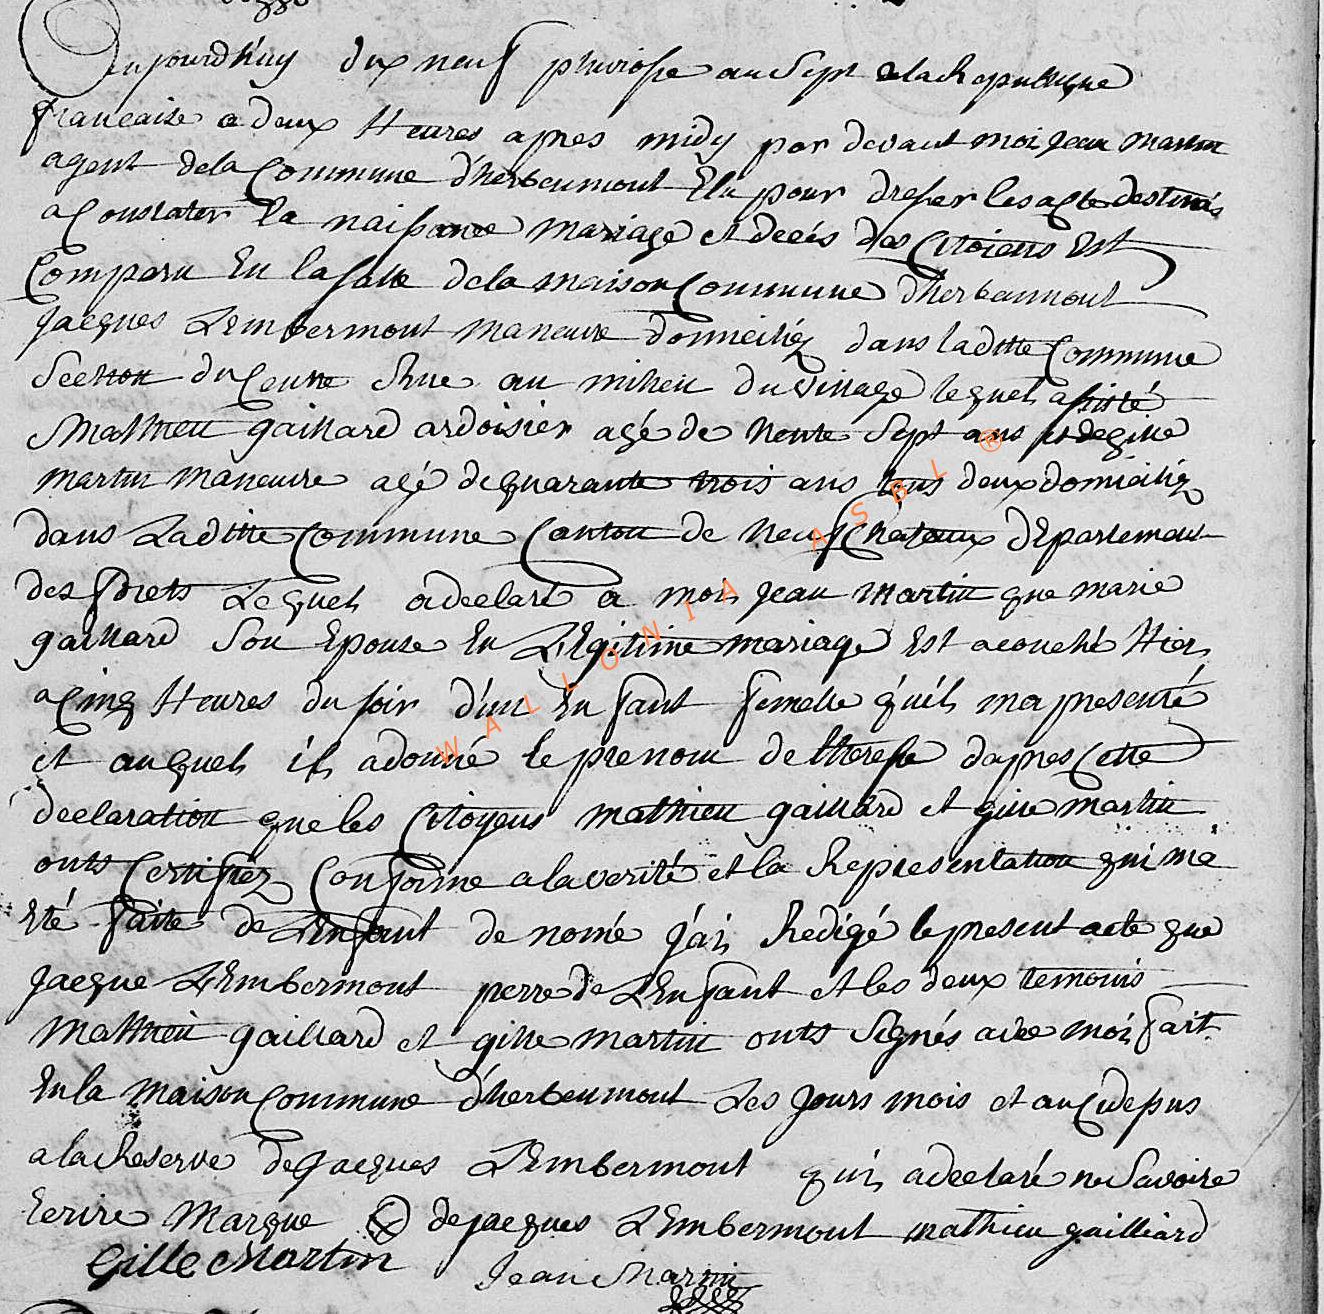 Aujourdhuy dix neuf pluviosse an Sept de la Republique
francaise a deux Heures apres midy par devant moi jean martin
agent de la Commune d'herbeumont Elu pour dresser les acte destinés
a Constater la naissance mariage et decés des Citoiens Est
Comparu En la salle de la maison Commune d'herbeumont
jacques LEmbermont maneuvre domiciliez dans laditte Commune
Section du Centre Rue au milieu du village lequel assisté
Mathieu gaillard ardoisier agé de trente Sept ans et de gille
martin maneuvre agé de quarante trois ans tous deux domiciliez
dans Laditte Commune Canton de neufchateaux dEpartement
des forets Lequel a declaré a moi jean martin que marie
gaillard Son Epouse En LEgitime mariage Est acouché Hier
a Cinq Heures du soir d'un En fant femelle qu'il ma presenté
et auquel il a donné le prenom de theresse dapres Cette
declaration que les Citoyens mathieu gaillard et gille martin
onts Certifiez Conforme a la verité et la Representation qui ma
Eté faite de LEnfant de nomé j'ai Redigé le present acte que
jacque LEmbermont perre de LEnfant et les deux temoins
Mathieu gaillard et gille martin onts Signés avec moi fait
En la maison Commune d'herbeumont Les jours mois et an Cidessus
a la Reserve de jacques LEmbermont qui a declaré ne Savoire
Ecrire Marque de jacques LEmbermont mathieu gailliard
Gille Martin Jean Martin
WALLONIA ASBL ®